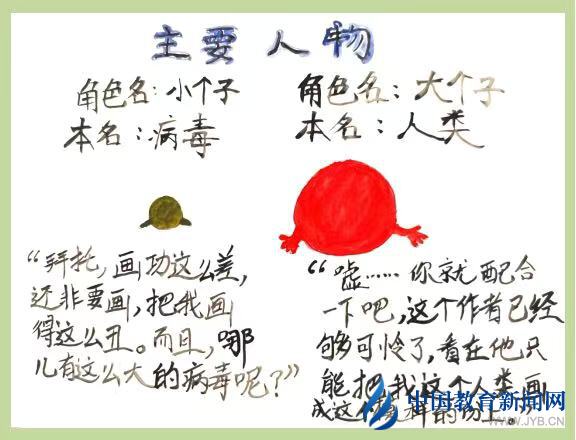 主要人物
角色名：小个子
本名：病毒
“拜托，画功这么差，
还非要画，把我画
得这么丑。而且，哪
儿有这么大的病毒呢？”
角色名：大个子
本名：人类
“嘘……你就配合
一下吧，这个作者已经
够可怜了，看在他只
能把我这个人类画
成这样的份上。”
中国教育新闻网
WWW.JYB.CN